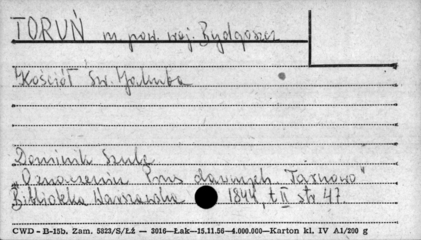 TORUŃ m. pow. woj. Bydgoszcz
Kościół Św. Jakuba
Dominik Szulc
"O znaczeniu Prus dawnych Tarnowo"
Biblioteka Warszawska 1844, t II str 47.
CWD - B-15b. Zam. 5823/S/Łż — 3016—Łak—15.11.56—4.000.000—Karton kl. IV A1/200 g